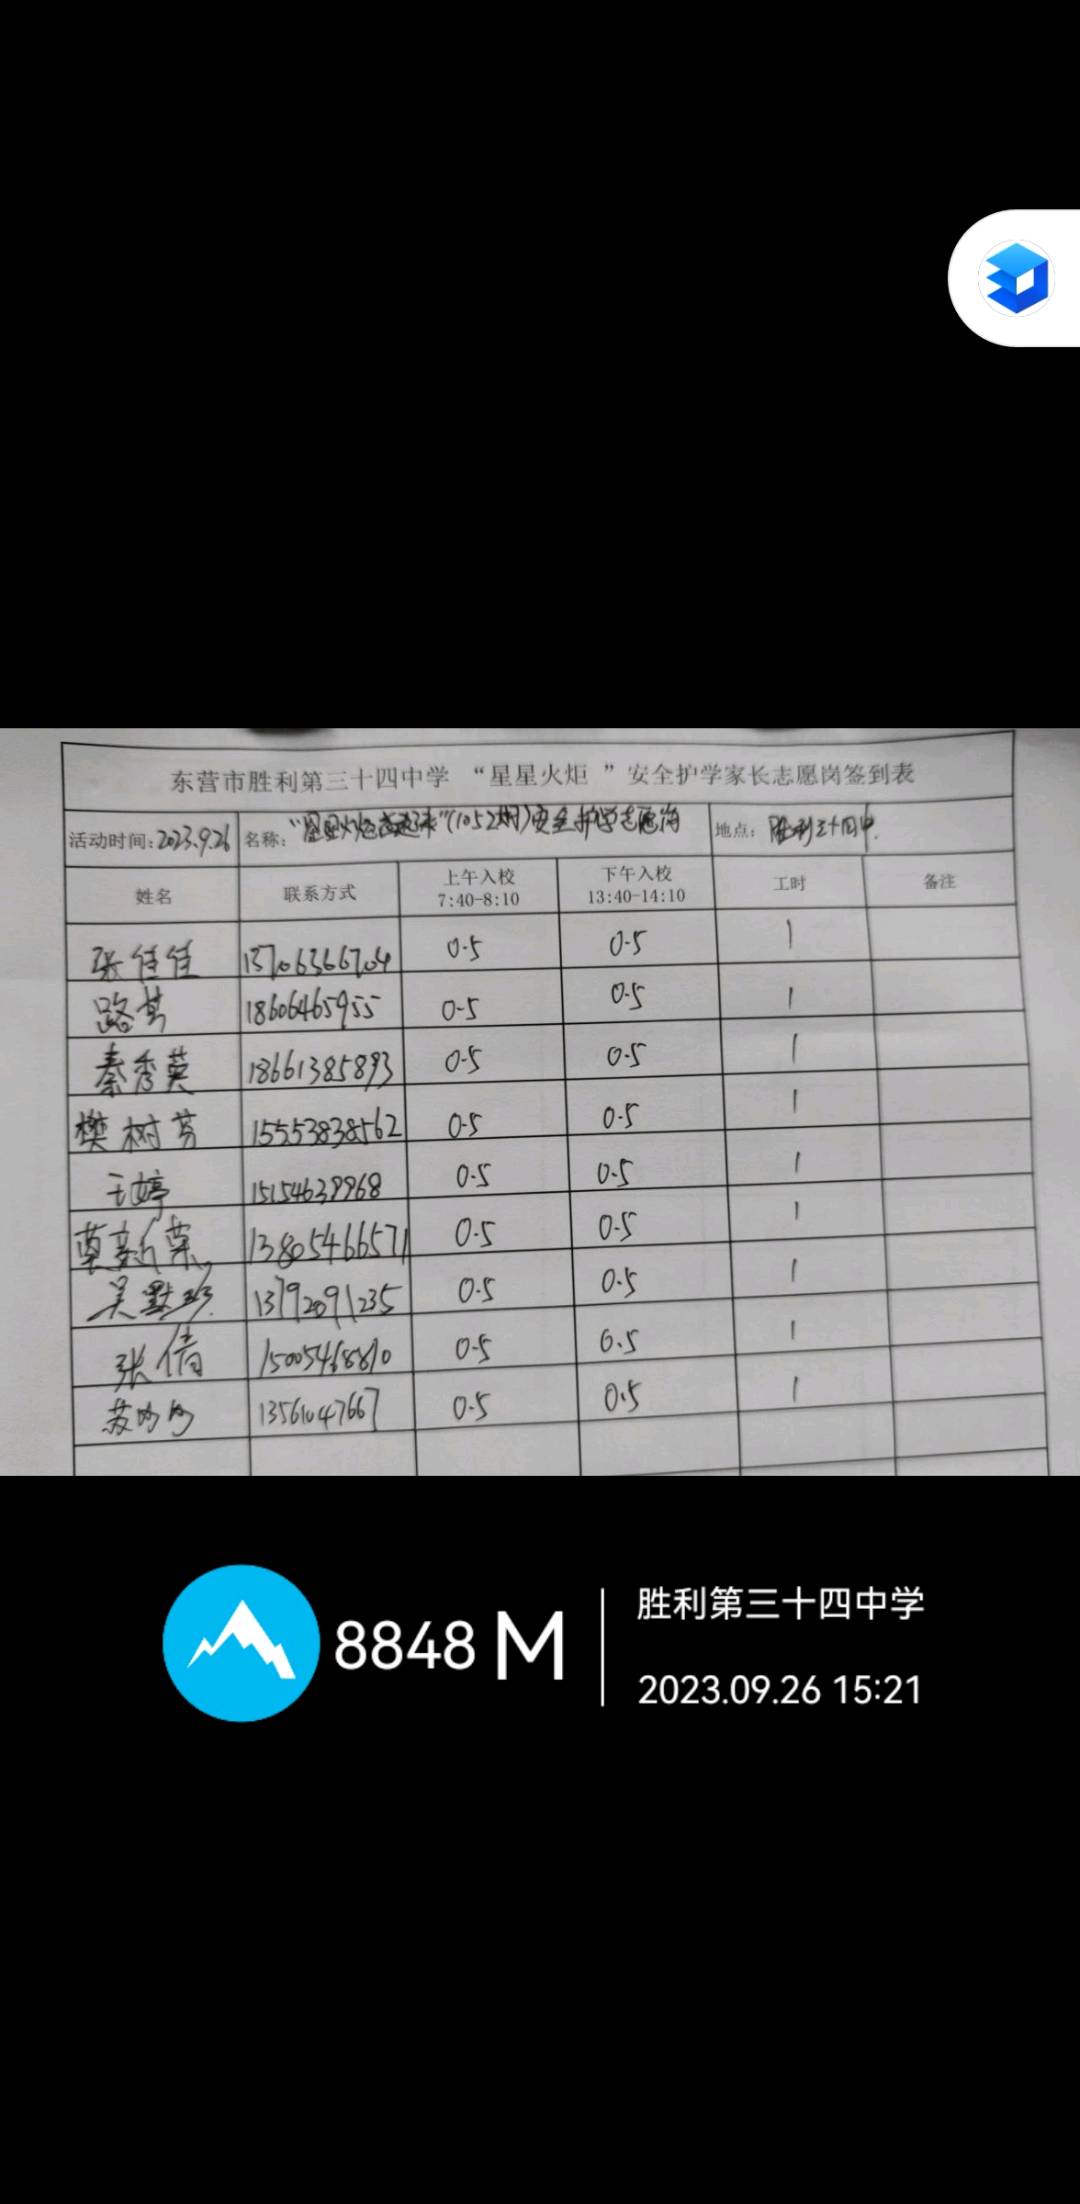 东营市胜利第三十四中学 “星星火炬 ”安全护学家长志愿岗签到表
活动时间:2023.9.26 名称: (1052期)安全护学志愿岗 地点: 胜利三十四中
姓名 联系方式 上午入校 7:40-8:10 下午入校 13:40-14:10 工时 备注
张佳佳 13706366704 0.5 0.5 1
路芳 18606465955 0.5 0.5 1
秦秀英 18661385893 0.5 0.5 1
樊树芬 15553838562 0.5 0.5 1
王婷 15154639968 0.5 0.5 1
新 13805466571 0.5 0.5 1
吴 13792091235 0.5 0.5 1
张倩 15005468810 0.5 0.5 1
苏 13561047667 0.5 0.5 1
8848 M
胜利第三十四中学
2023.09.26 15:21